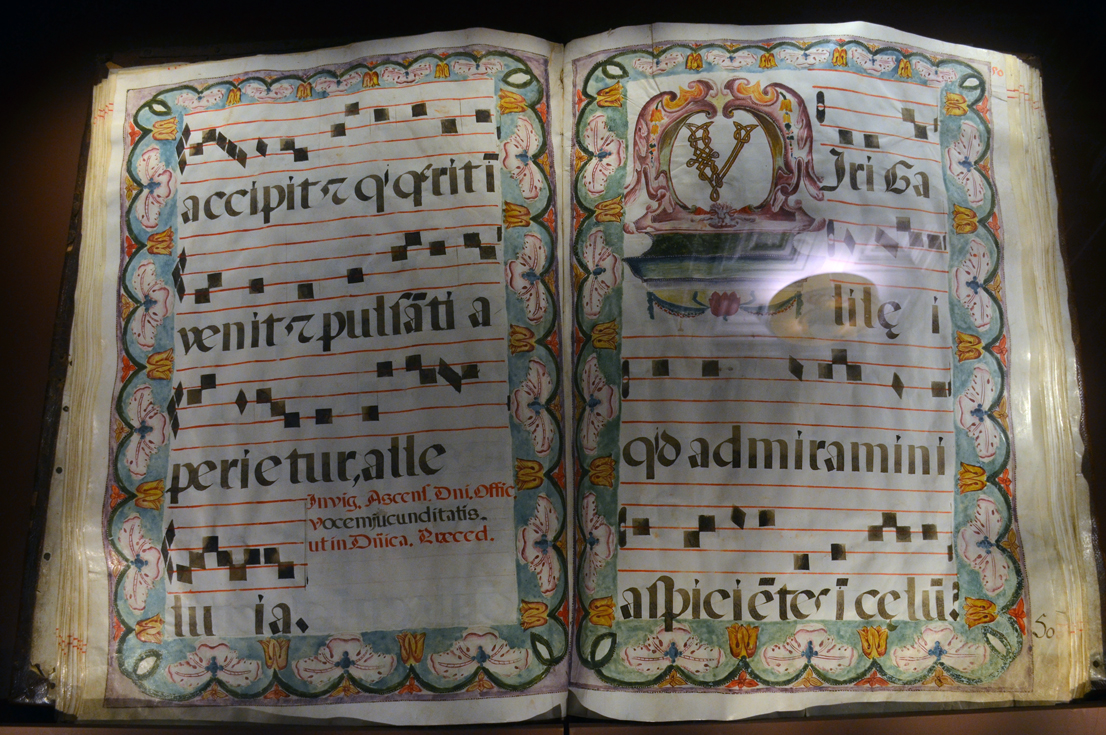 accipit ⁊ q̇ q̃rit i
venit ⁊ pulsãti a
perietur, alle
Invig. Ascens. Dni. Offic
vocem jucunditatis.
ut in Dñica. Præced.
lu ia.
80
Viri Ga
lilę i
qd admiramini
aspiciẽtes i cęlũ?
50